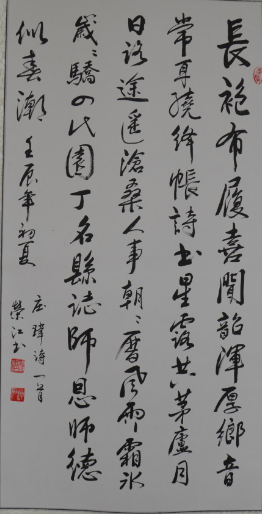 長袍布履喜聞韶渾厚鄉音
常耳繞絳帳詩書星露共茅廬月
日路途遙滄桑人事朝〻曆風雨霜冰
歲〻驕四代園丁名縣誌師恩師德
似春潮 壬辰年初夏
庄瑋詩一首
榮江書